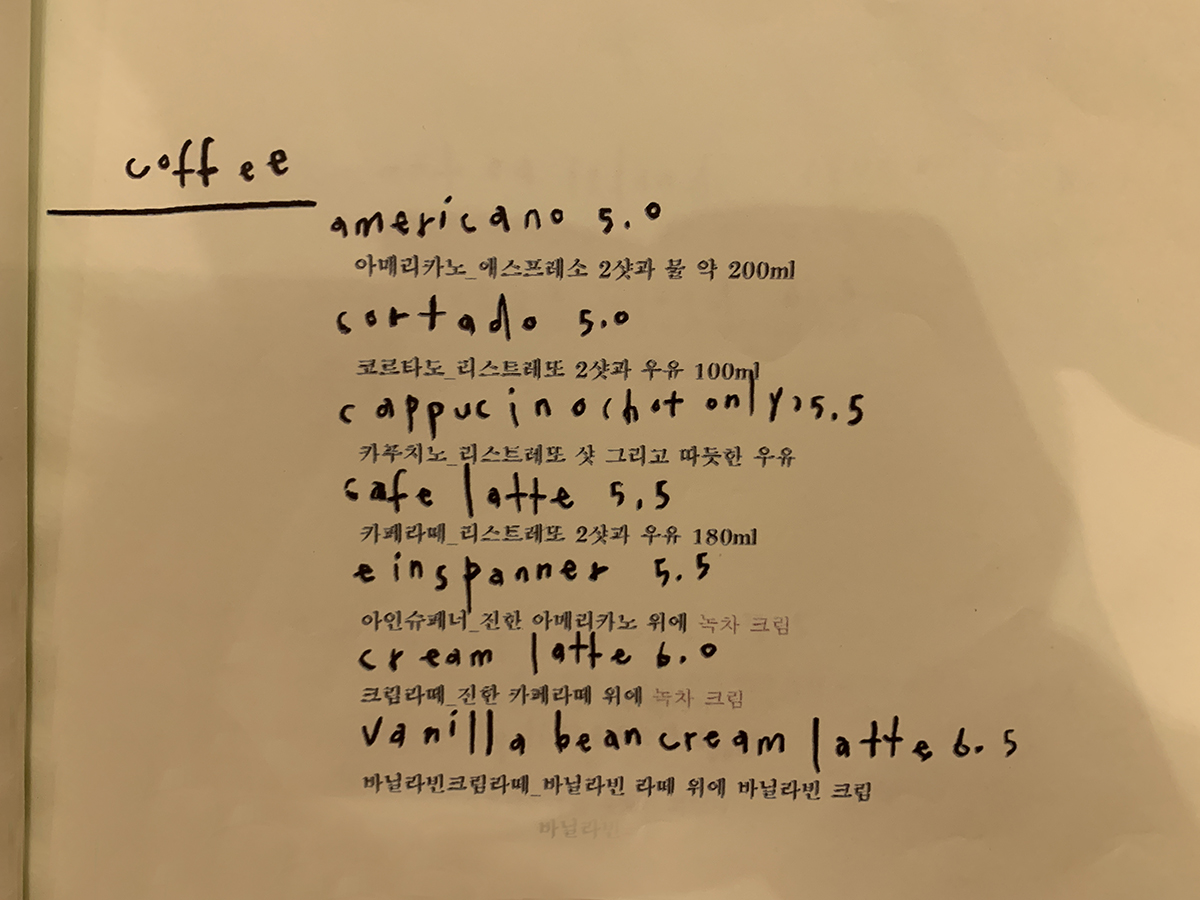 coffee
americano 5.0
아메리카노_에스프레소 2샷과 물 약 200ml
cortado 5.0
코르타도_리스트레또 2샷과 우유 100ml
cappucino(hot only)5.5
카푸치노_리스트레또 샷 그리고 따듯한 우유
cafe latte 5.5
카페라떼_리스트레또 2샷과 우유 180ml
einspanner 5.5
아인슈페너_진한 아메리카노 위에 녹차 크림
cream latte 6.0
크림라떼_진한 카페라떼 위에 녹차 크림
vanilla bean cream latte 6.5
바닐라빈크림라떼_바닐라빈 라떼 위에 바닐라빈 크림
바닐라빈